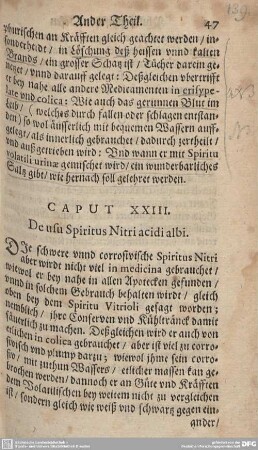 Ander Theil. 47
phurischen an Kräfften gleich geachtet werden / in-
sonderheidt / in Löschung deß heissen vnnd kalten
Brands / ein grosser Schatz ist / Tücher darein ge-
netzet / vnnd darauff gelegt: Deßgleichen vbertrifft
er bey nahe alle andere Medicamenten in erilype-
late vnd colica: Wie auch das gerunnen Blut im
Leib / (welches durch fallen oder schlagen enstan-
den) so wol äusserlich mit bequemen Wassern auff-
gelegt / als innerlich gebrauchet / dadurch zertheilt /
vnd außgetrieben wird: Vnd wann er mit Spiritu
volatili urinæ gemischet wird / ein wunderbarliches
Saltz gibt / wie hernach soll gelehret werden.
CAPUT XXIII.
De usu Spiritus Nitri acidi albi.
DIe schwere vnnd corrosivische Spiritus Nitri
aber wird nicht viel in medicina gebrauchet /
wiewol er bey nahe in allen Apotecken gefunden /
vnnd in solchem Gebrauch behalten wirdt / gleich
oben bey dem Spiritu Vitrioli gesagt worden;
nemblich / ihre Conserven vnd Kühltränck damit
säurlich zu machen. Deßgleichen wird er auch von
etlichen in colica gebrauchet / aber ist viel zu corro-
sivisch vnd plump darzu; wiewol ihme sein corro-
siv / mit zuthun Wassers / etlicher massen kan ge-
brochen werden / dannoch er an Güte vnd Kräfften
dem Volatilischen bey weitem nicht zu vergleichen
ist / sondern gleich wie weiß vnd schwartz gegen ein-
ander /